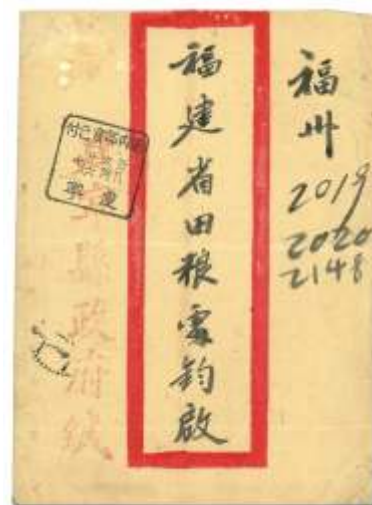 福州
2019
2020
2148
福建省田粮處鈞啟
縣政府緘